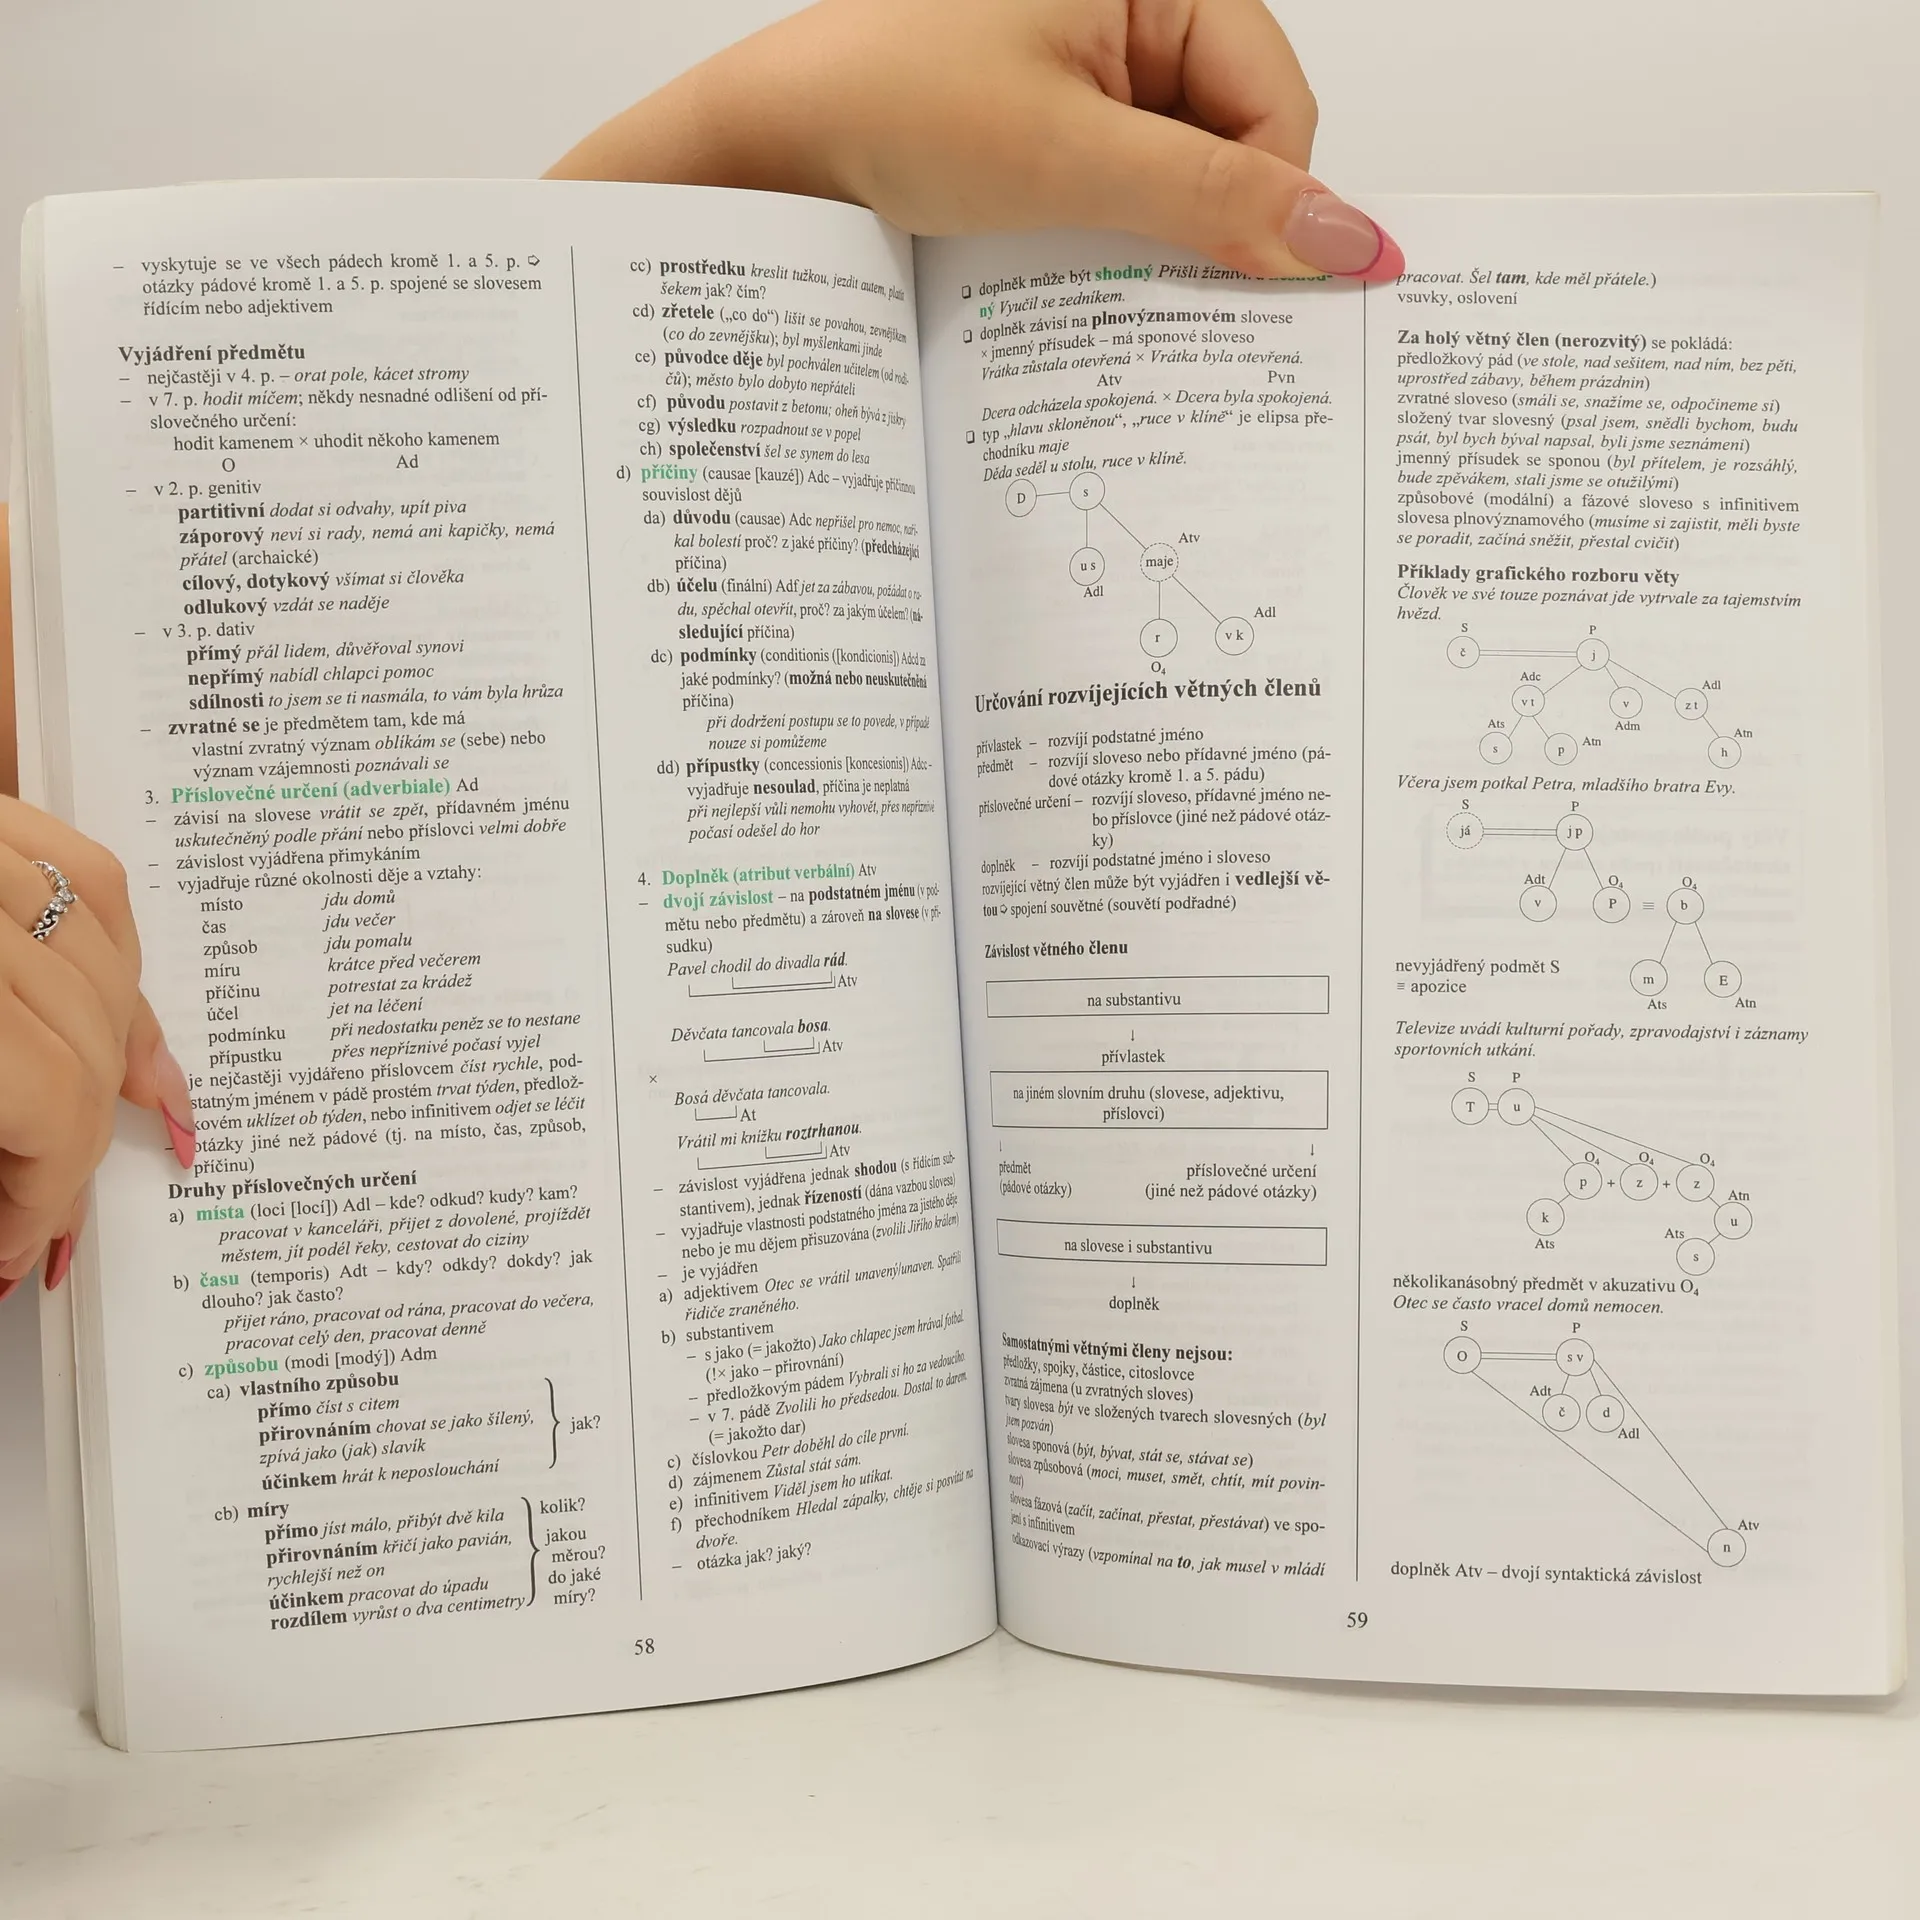 – vyskytuje se ve všech pádech kromě 1. a 5. p. ➩
otázky pádové kromě 1. a 5. p. spojené se slovesem
řídícím nebo adjektivem
Vyjádření předmětu
– nejčastěji v 4. p. – orat pole, kácet stromy
– v 7. p. hodit míčem; někdy nesnadné odlišení od pří-
slovečného určení:
hodit kamenem × uhodit někoho kamenem
O Ad
– v 2. p. genitiv
partitivní dodat si odvahy, upít piva
záporový neví si rady, nemá ani kapičky, nemá
přátel (archaické)
cílový, dotykový všímat si člověka
odlukový vzdát se naděje
– v 3. p. dativ
přímý přál lidem, důvěřoval synovi
nepřímý nabídl chlapci pomoc
sdílnosti to jsem se ti nasmála, to vám byla hrůza
– zvratné se je předmětem tam, kde má
vlastní zvratný význam oblíkám se (sebe) nebo
význam vzájemnosti poznávali se
3. Příslovečné určení (adverbiale) Ad
– závisí na slovese vrátit se zpět, přídavném jménu
uskutečněný podle přání nebo příslovci velmi dobře
– závislost vyjádřena přimykáním
– vyjadřuje různé okolnosti děje a vztahy:
místo jdu domů
čas jdu večer
způsob jdu pomalu
míru krátce před večerem
příčinu potrestat za krádež
účel jet na léčení
podmínku při nedostatku peněz se to nestane
přípustku přes nepříznivé počasí vyjel
je nejčastěji vyjdářeno příslovcem číst rychle, pod-
statným jménem v pádě prostém trvat týden, předlož-
kovém uklízet ob týden, nebo infinitivem odjet se léčit
– otázky jiné než pádové (tj. na místo, čas, způsob,
příčinu)
Druhy příslovečných určení
a) místa (loci [locí]) Adl – kde? odkud? kudy? kam?
pracovat v kanceláři, přijet z dovolené, projíždět
městem, jít podél řeky, cestovat do ciziny
b) času (temporis) Adt – kdy? odkdy? dokdy? jak
dlouho? jak často?
přijet ráno, pracovat od rána, pracovat do večera,
pracovat celý den, pracovat denně
c) způsobu (modi [modý]) Adm
ca) vlastního způsobu
přímo číst s citem
přirovnáním chovat se jako šílený,
zpívá jako (jak) slavík
účinkem hrát k neposlouchání
jak?
cb) míry
přímo jíst málo, přibýt dvě kila
přirovnáním křičí jako pavián,
rychlejší než on
účinkem pracovat do úpadu
rozdílem vyrůst o dva centimetry
kolik?
jakou
měrou?
do jaké
míry?
58
cc) prostředku kreslit tužkou, jezdit autem, platit
šekem jak? čím?
cd) zřetele („co do“) lišit se povahou, zevnějškem
(co do zevnějšku); byl myšlenkami jinde
ce) původce děje byl pochválen učitelem (od rodi-
čů); město bylo dobyto nepřáteli
cf) původu postavit z betonu; oheň bývá z jiskry
cg) výsledku rozpadnout se v popel
ch) společenství šel se synem do lesa
d) příčiny (causae [kauzé]) Adc – vyjadřuje příčinnou
souvislost dějů
da) důvodu (causae) Adc nepřišel pro nemoc, naří-
kal bolestí proč? z jaké příčiny? (předcházející
příčina)
db) účelu (finální) Adf jet za zábavou, požádat o ra-
du, spěchal otevřít, proč? za jakým účelem? (ná-
sledující příčina)
dc) podmínky (conditionis ([kondicionis]) Adcd za
jaké podmínky? (možná nebo neuskutečněná
příčina)
při dodržení postupu se to povede, v případě
nouze si pomůžeme
dd) přípustky (concessionis [koncesionis]) Adcc –
vyjadřuje nesoulad, příčina je neplatná
při nejlepší vůli nemohu vyhovět, přes nepříznivé
počasí odešel do hor
4. Doplněk (atribut verbální) Atv
– dvojí závislost – na podstatném jménu (v pod-
mětu nebo předmětu) a zároveň na slovese (v pří-
sudku)
Pavel chodil do divadla rád.
Atv
Děvčata tancovala bosa.
Atv
×
Bosá děvčata tancovala.
At
Vrátil mi knížku roztrhanou.
Atv
– závislost vyjádřena jednak shodou (s řídícím sub-
stantivem), jednak řízeností (dána vazbou slovesa)
– vyjadřuje vlastnosti podstatného jména za jistého děje
nebo je mu dějem přisuzována (zvolili Jiřího králem)
– je vyjádřen
a) adjektivem Otec se vrátil unavený/unaven. Spatřili
řidiče zraněného.
b) substantivem
– s jako (= jakožto) Jako chlapec jsem hrával fotbal.
(!× jako – přirovnání)
– předložkovým pádem Vybrali si ho za vedoucího.
– v 7. pádě Zvolili ho předsedou. Dostal to darem.
(= jakožto dar)
c) číslovkou Petr doběhl do cíle první.
d) zájmenem Zůstal stát sám.
e) infinitivem Viděl jsem ho utíkat.
f) přechodníkem Hledal zápalky, chtěje si posvítit na
dvoře.
– otázka jak? jaký?
❑ doplněk může být shodný Přišli
ný Vyučil se zedníkem.
❑ doplněk závisí na plnovýznamovém slovese
× jmenný přísudek – má sponové sloveso
Vrátka zůstala otevřená × Vrátka byla otevřená.
Atv Pvn
Dcera odcházela spokojená. × Dcera byla spokojená.
❑ typ „hlavu skloněnou“, „ruce v klíně“ je elipsa pře-
chodníku maje
Děda seděl u stolu, ruce v klíně.
D s
Atv
u s maje
Adl
Adl
r v k
O4
Určování rozvíjejících větných členů
přívlastek – rozvíjí podstatné jméno
předmět – rozvíjí sloveso nebo přídavné jméno (pá-
dové otázky kromě 1. a 5. pádu)
příslovečné určení – rozvíjí sloveso, přídavné jméno ne-
bo příslovce (jiné než pádové otáz-
ky)
doplněk – rozvíjí podstatné jméno i sloveso
rozvíjející větný člen může být vyjádřen i vedlejší vě-
tou ➩ spojení souvětné (souvětí podřadné)
Závislost větného členu
na substantivu
↓
přívlastek
na jiném slovním druhu (slovese, adjektivu,
příslovci)
↓ ↓
předmět příslovečné určení
(pádové otázky) (jiné než pádové otázky)
na slovese i substantivu
↓
doplněk
Samostatnými větnými členy nejsou:
předložky, spojky, částice, citoslovce
zvratná zájmena (u zvratných sloves)
tvary slovesa být ve složených tvarech slovesných (byl
jsem pozván)
slovesa sponová (být, bývat, stát se, stávat se)
slovesa způsobová (moci, muset, smět, chtít, mít povin-
nost)
slovesa fázová (začít, začínat, přestat, přestávat) ve spo-
jení s infinitivem
odkazovací výrazy (vzpomínal na to, jak musel v mládí
59
pracovat. Šel tam, kde měl přátele.)
vsuvky, oslovení
Za holý větný člen (nerozvitý) se pokládá:
předložkový pád (ve stole, nad sešitem, nad ním, bez pěti,
uprostřed zábavy, během prázdnin)
zvratné sloveso (smáli se, snažíme se, odpočineme si)
složený tvar slovesný (psal jsem, snědli bychom, budu
psát, byl bych býval napsal, byli jsme seznámeni)
jmenný přísudek se sponou (byl přítelem, je rozsáhlý,
bude zpěvákem, stali jsme se otužilými)
způsobové (modální) a fázové sloveso s infinitivem
slovesa plnovýznamového (musíme si zajistit, měli byste
se poradit, začíná sněžit, přestal cvičit)
Příklady grafického rozboru věty
Člověk ve své touze poznávat jde vytrvale za tajemstvím
hvězd.
S P
č j
Adc Adl
v t v z t
Ats Adm Atn
s p Atn h
Včera jsem potkal Petra, mladšího bratra Evy.
S P
já j p
Adt O4 O4
v P ≡ b
nevyjádřený podmět S
≡ apozice
m E
Ats Atn
Televize uvádí kulturní pořady, zpravodajství i záznamy
sportovních utkání.
S P
T u
O4 O4 O4
p + z + z
Atn
k u
Ats Ats
s
několikanásobný předmět v akuzativu O4
Otec se často vracel domů nemocen.
S P
O s v
Adt
č d
Adl
Atv
n
doplněk Atv – dvojí syntaktická závislost